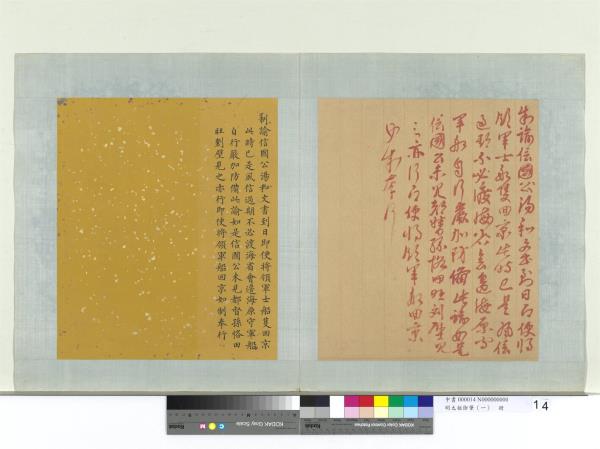 制諭信國公湯和文書到日即便將
領軍士船隻回京此時已是風信
過期不必渡海省會邊海原守
軍船自行嚴加防備此諭如是
信國公未見都督孫恪田旺劉璧見
之亦行即便將領軍船回京
如制奉行
制諭信國公湯和文書到日即便將領軍士船隻回京
此時已是風信過期不必渡海省會邊海原守軍船
自行嚴加防備此諭如是信國公未見都督孫恪田
旺劉璧見之亦行即便將領軍船回京如制奉行
KODAK Gray Scale
C
Y
M
Kodak
KODAK Color Control Patches
中書000014N000000000
明太祖御筆（一） 冊
14